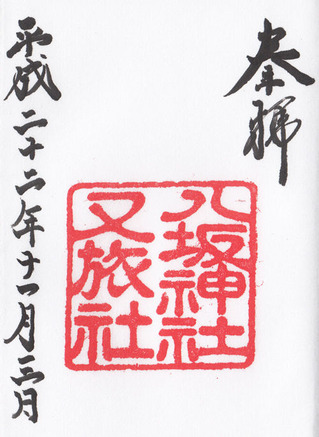 奉拝
八坂神社
又旅社
平成二十二年十一月三日